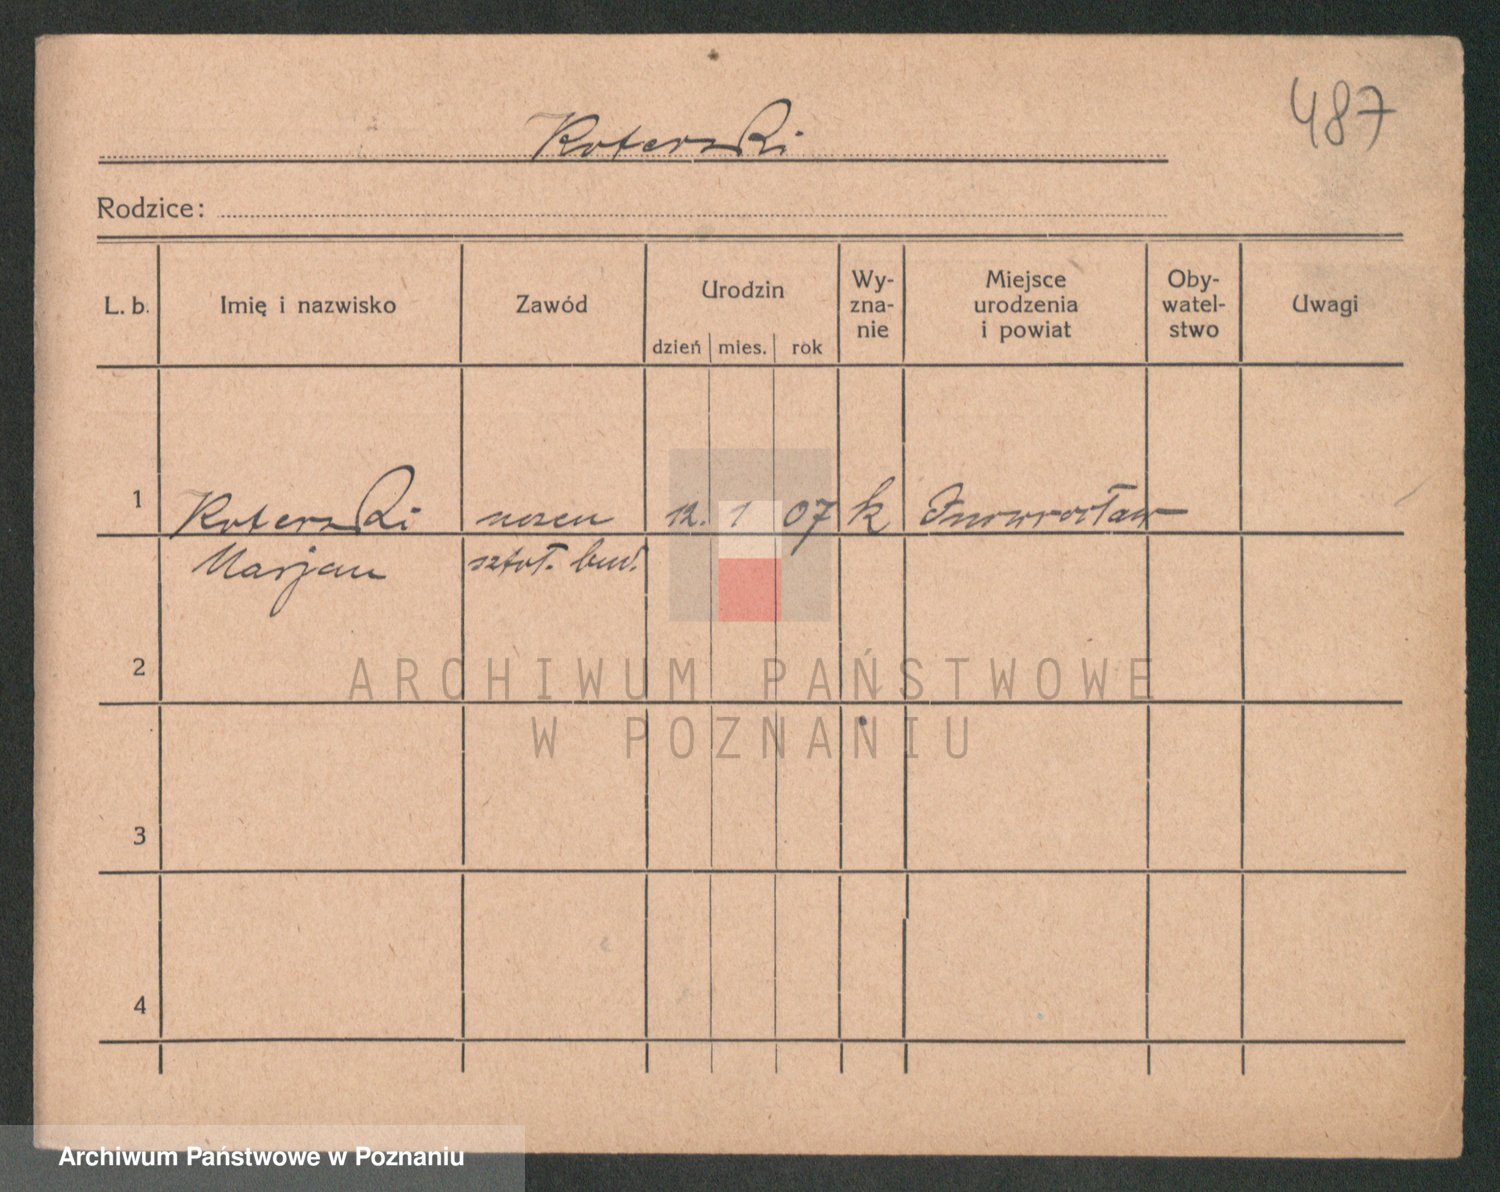 487
Koterski
Rodzice:
L. b.
Imię i nazwisko
Zawód
Urodzin
dzień mies. rok
Wy-
zna-
nie
Miejsce
urodzenia
i powiat
Oby-
watel-
stwo
Uwagi
1 Koterski uczeń 12. 1 07 k Inowrocław
Marjan stol. bud.
2
3
4
ARCHIWUM PAŃSTWOWE
W POZNANIU
Archiwum Państwowe w Poznaniu